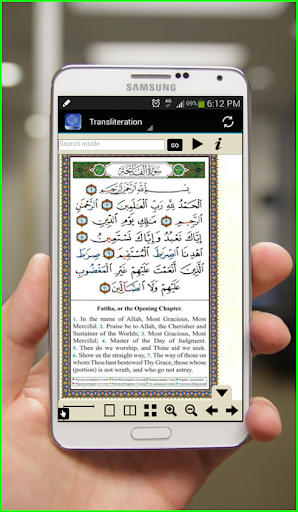 SAMSUNG
4G 69% 6:12 PM
Transliteration
Search inside GO i
سُورَةُ الْفَاتِحَةِ
بِسْمِ اللَّهِ الرَّحْمَٰنِ الرَّحِيمِ
الْحَمْدُ لِلَّهِ رَبِّ الْعَٰلَمِينَ الرَّحْمَٰنِ
الرَّحِيمِ مَٰلِكِ يَوْمِ الدِّينِ
إِيَّاكَ نَعْبُدُ وَإِيَّاكَ نَسْتَعِينُ
اهْدِنَا الصِّرَٰطَ الْمُسْتَقِيمَ صِرَٰطَ
الَّذِينَ أَنْعَمْتَ عَلَيْهِمْ غَيْرِ الْمَغْضُوبِ
عَلَيْهِمْ وَلَا الضَّالِّينَ
Fatiha, or the Opening Chapter.
1. In the name of Allah, Most Gracious, Most
Merciful. 2. Praise be to Allah, the Cherisher and
Sustainer of the Worlds; 3. Most Gracious, Most
Merciful; 4. Master of the Day of Judgment.
5. Thee do we worship, and Thine aid we seek.
6. Show us the straight way, 7. The way of those on
whom Thou hast bestowed Thy Grace, those whose
(portion) is not wrath, and who go not astray.